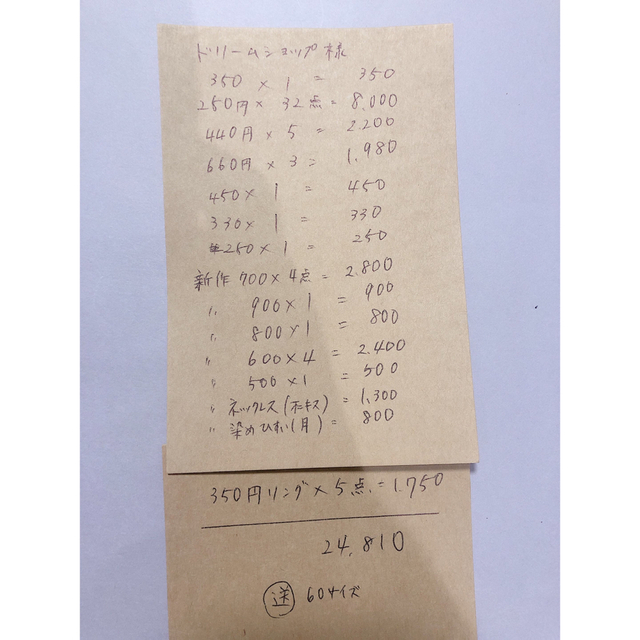 ドリームショップ様
350 × 1 = 350
250円 × 32点 = 8.000
440円 × 5 = 2.200
660円 × 3 = 1.980
450 × 1 = 450
330 × 1 = 330
250 × 1 = 250
新作 700 × 4点 = 2.800
〃 900 × 1 = 900
〃 800 × 1 = 800
〃 600 × 4 = 2.400
〃 500 × 1 = 500
〃 ネックレス ( ) = 1.300
〃 染めひすい (月) = 800
350円リング × 5点 = 1.750
24.810
送 60サイズ